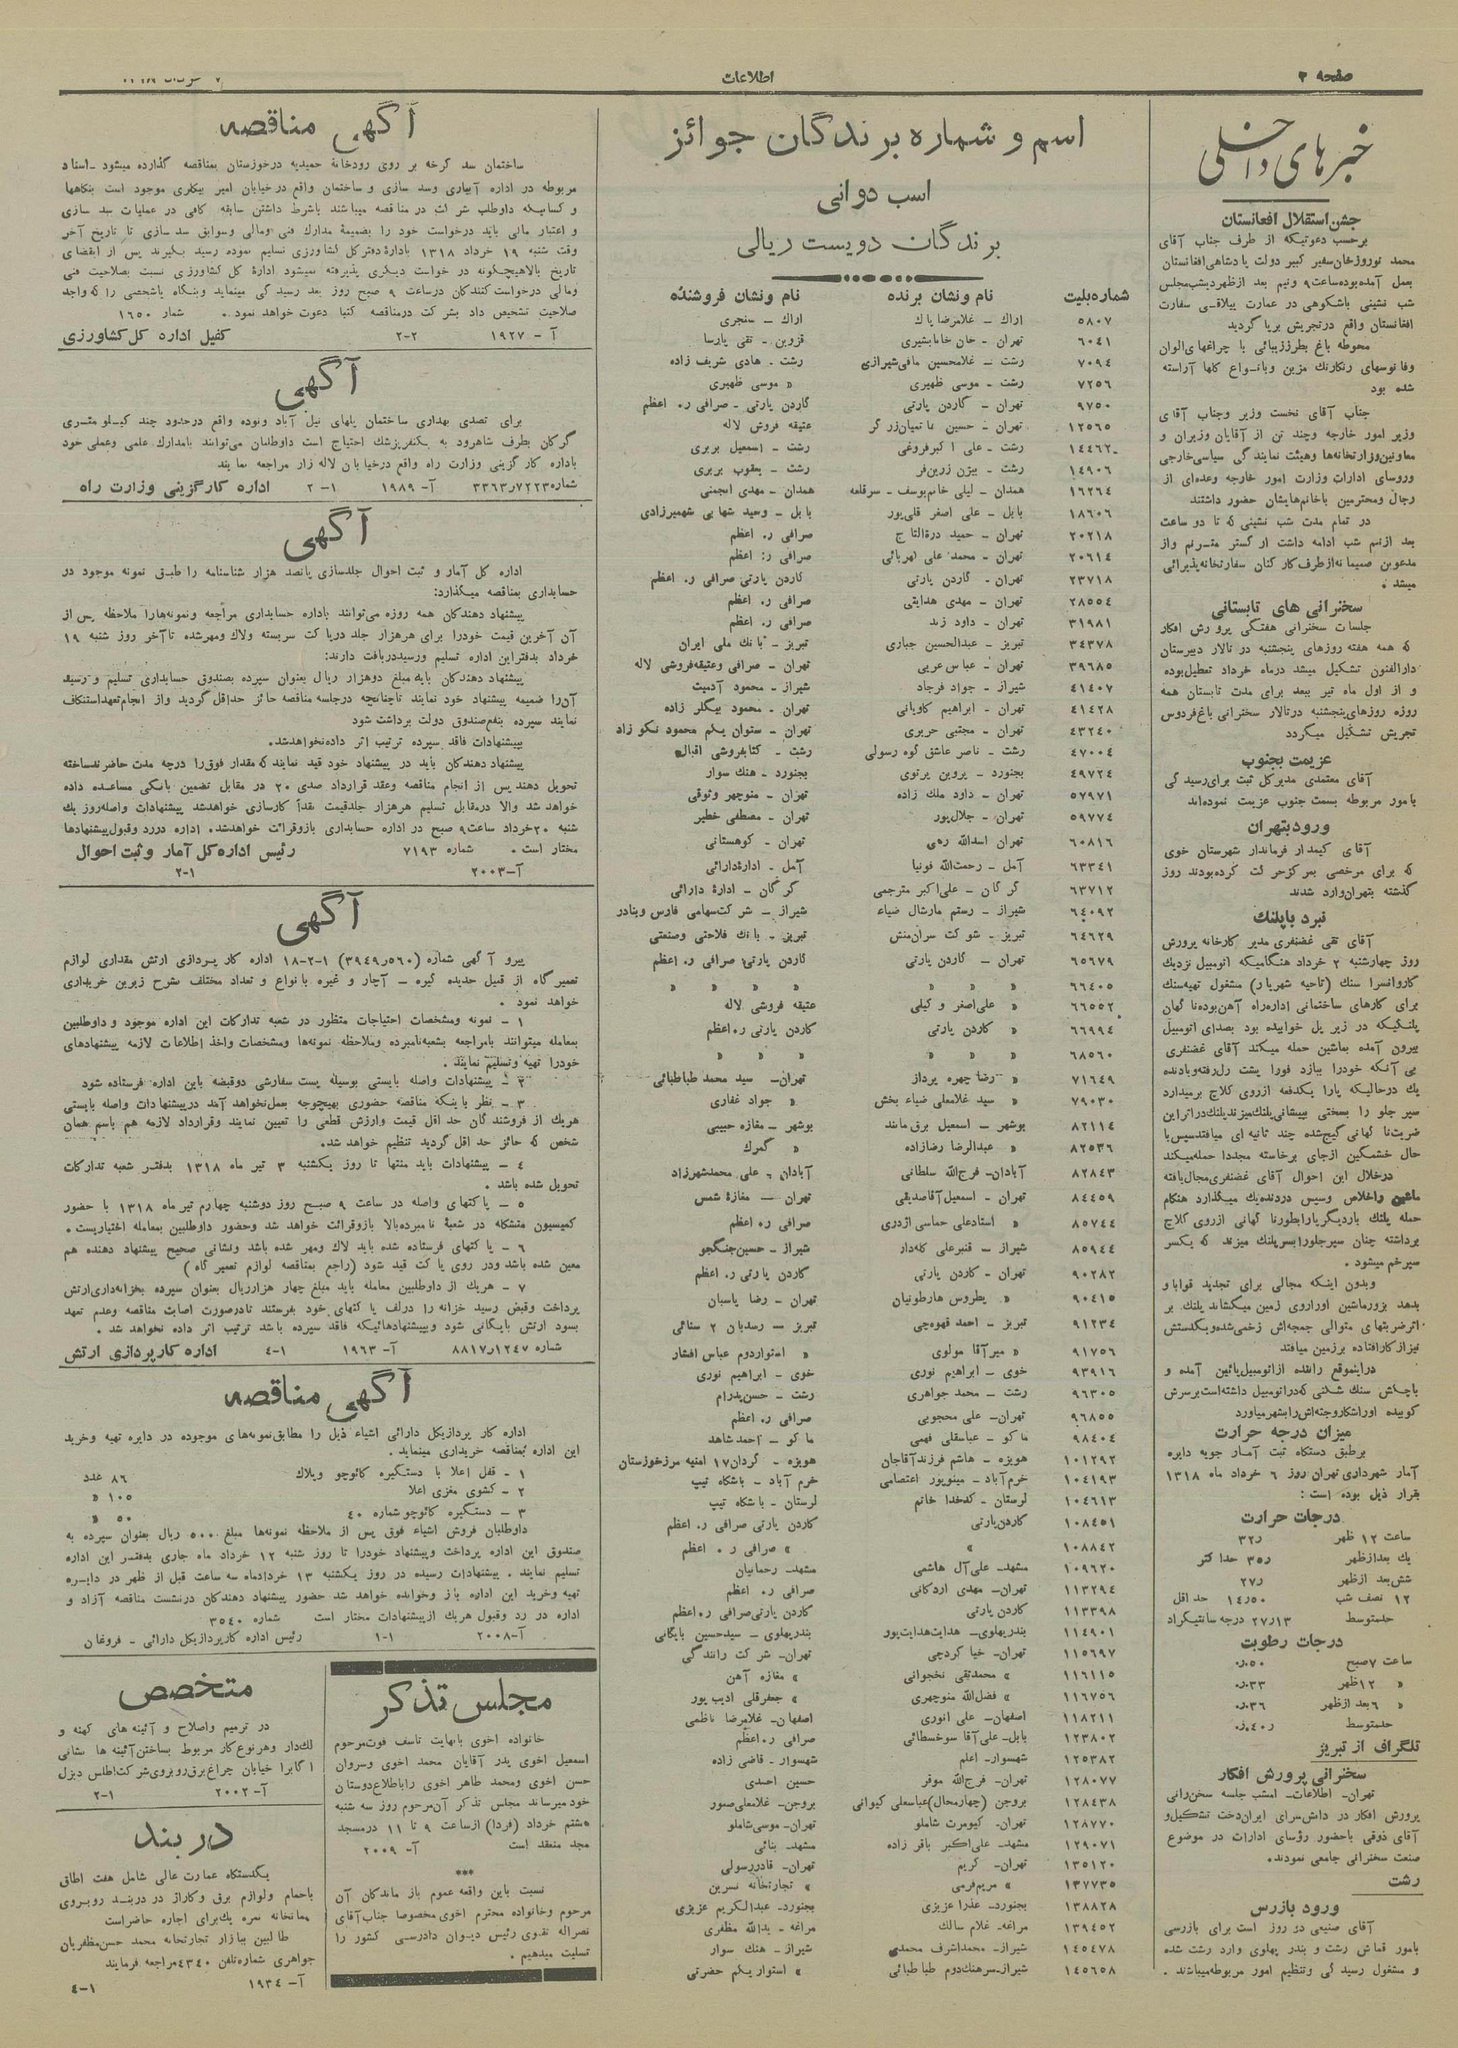 صفحه ۲
اطلاعات
خبرهای داخلی
جشن استقلال افغانستان
برحسب دعوتیکه از طرف جناب آقای
محمد نوروزخان سفیر کبیر دولت پادشاهی افغانستان
بعمل آمده بود ساعت ۹ ونیم بعد ازظهر دیشب مجلس
شب نشینی باشکوهی در عمارت ییلاقی سفارت
افغانستان واقع در تجریش برپا گردید
محوطه باغ بطرز زیبائی با چراغهای الوان
وفانوسهای رنگارنگ مزین وبانواع گلها آراسته
شده بود
جناب آقای نخست وزیر وجناب آقای
وزیر امور خارجه وچند تن از آقایان وزیران و
معاونین وزارتخانه‌ها وهیئت نمایندگی سیاسی خارجی
وروسای ادارات وزارت امور خارجه وعده‌ای از
رجال ومحترمین باخانم‌هایشان حضور داشتند
در تمام مدت شب نشینی که تا دو ساعت
بعد ازنیم شب ادامه داشت ارکستر مترنم واز
مدعوین صمیمانه ازطرف کارکنان سفارتخانه پذیرائی
میشد .
سخنرانی های تابستانی
جلسات سخنرانی هفتگی پرورش افکار
که همه هفته روزهای پنجشنبه در تالار دبیرستان
دارالفنون تشکیل میشد درماه خرداد تعطیل بوده
و از اول ماه تیر ببعد برای مدت تابستان همه
روزه روزهای پنجشنبه درتالار سخنرانی باغ فردوس
تجریش تشکیل میگردد
عزیمت بجنوب
آقای معتمدی مدیرکل ثبت برای رسیدگی
بامور مربوطه بسمت جنوب عزیمت نموده‌اند
ورود بتهران
آقای کیمدار فرماندار شهرستان خوی
که برای مرخصی بمرکز حرکت کرده بودند روز
گذشته بتهران وارد شدند
نبرد باپلنگ
آقای تقی غضنفری مدیر کارخانه پرورش
روز چهارشنبه ۲ خرداد هنگامیکه اتومبیل نزدیک
کاروانسرا سنگ (ناحیه شهریار) مشغول تهیه سنگ
برای کارهای ساختمانی اداره راه آهن بوده ناگهان
پلنگیکه در زیر پل خوابیده بود بصدای اتومبیل
بیرون آمده بماشین حمله میکند آقای غضنفری
بی آنکه خودرا ببازد فورا پشت رل رفته وبادنده
یک درحالیکه پارا یکدفعه ازروی کلاچ برمیدارد
سپر جلو را بسختی بپیشانی پلنگ میزند پلنگ دراثر این
ضربت ناگهانی گیج شده چند ثانیه ای میافتد سپس با
حال خشمگین ازجای برخاسته مجددا حمله میکند
درخلال این احوال آقای غضنفری مجال یافته
ماشین راخلاص وسپس دردنده یک میگذارد هنگام
حمله پلنگ باردیگر پارا بطور ناگهانی ازروی کلاچ
برداشته چنان سپر جلورا بسر پلنگ میزند که یکسر
سپر خم میشود .
وبدون اینکه مجالی برای تجدید قوا باو
بدهد بزور ماشین اورا روی زمین میکشاند پلنگ بر
اثر ضربتهای متوالی جمجمه‌اش زخمی شده ویکدستش
نیز از کار افتاده برزمین میافتد
دراینموقع راننده ازاتومبیل پائین آمده و
باچکش سنگ شکنی که دراتومبیل داشته است برسرش
کوبیده اورا شکار وجثه‌اش را بشهر میآورد
میزان درجه حرارت
برطبق دستگاه ثبت آمار جویه دایره
آمار شهرداری تهران روز ۶ خرداد ماه ۱۳۱۸
بقرار ذیل بوده است :
درجات حرارت
ساعت ۱۲ ظهر ر۳۲
یک بعدازظهر ر۳۵ حداکثر
شش بعد ازظهر ر۲۷
۱۲ نصف شب ۱۴٫۵۰ حد اقل
حدمتوسط ۲۷٫۱۳ درجه سانتیگراد
درجات رطوبت
ساعت ۷صبح ۵۰.ر۰
» ۱۲ظهر ۳۳.ر۰
» ۶بعد ازظهر ۳۶.ر۰
حدمتوسط ۴۰.ر۰
تلگراف از تبریز
سخنرانی پرورش افکار
تهران- اطلاعات- امشب جلسه سخنرانی
پرورش افکار در دانش‌سرای ایران‌دخت تشکیل و
آقای ذوقی باحضور رؤسای ادارات در موضوع
صنعت سخنرانی جامعی نمودند.
رشت
ورود بازرس
آقای صنیعی دو روز است برای بازرسی
بامور قماش رشت و بندر پهلوی وارد رشت شده
و مشغول رسیدگی وتنظیم امور مربوطه میباشند .
اسم و شماره برندگان جوائز
اسب دوانی
برندگان دویست ریالی
شماره بلیت نام ونشان برنده نام ونشان فروشنده
۵۸۰۷ اراک – غلامرضا پاک اراک – سنجری
۶۰۴۱ تهران – خان خانابشیری قزوین – تقی پارسا
۷۰۹۴ رشت – غلامحسین مافی شیرازی رشت – هادی شریف زاده
۷۲۵۶ رشت – موسی ظهیری » موسی ظهیری
۹۷۵۰ تهران – گاردن پارتی گاردن پارتی – صرافی ر. اعظم
۱۲۵۶۵ تهران – حسین زرگر عتیقه فروش لاله
۱۴۴۶۲ رشت – علی اکبر فروغی رشت – اسمعیل بربری
۱۴۹۰۶ رشت – بیژن زرین‌فر رشت – یعقوب بربری
۱۶۲۶۴ همدان – لیلی خانم یوسف – سرقلعه همدان – مهدی انجمنی
۱۸۶۰۶ بابل – علی اصغر قلی‌پور بابل – وحید شهابی شهمیرزادی
۲۰۲۱۸ تهران – حمید درة‌التاج صرافی ر. اعظم
۲۰۶۱۴ تهران – محمد علی صرافی ر. اعظم
۲۳۷۱۸ تهران – گاردن پارتی گاردن پارتی صرافی ر. اعظم
۲۸۵۵۴ تهران – مهدی هدایتی صرافی ر. اعظم
۳۱۹۸۱ تهران – داود زند صرافی ر. اعظم
۳۴۳۷۸ تبریز – عبدالحسین جباری تبریز – بانک ملی ایران
۳۹۶۸۵ تهران – عباس عربی تهران – صرافی وعتیقه‌فروشی لاله
۴۱۴۰۷ شیراز – جواد فرجاد شیراز – محمود آدمیت
۴۱۴۲۸ تهران – ابراهیم کاویانی تهران – محمود بیگلر زاده
۴۳۲۴۰ تهران – مجتبی حریری تهران – ستوان یکم محمود نیکو زاد
۴۷۰۰۴ رشت – ناصر عاشق گوه رسولی رشت – کتابفروشی اقبال
۴۹۷۲۴ بجنورد – پروین پرتوی بجنورد – هنگ سوار
۵۷۹۷۱ تهران – داود ملک زاده تهران – منوچهر وثوقی
۵۹۷۷۴ تهران – جلال‌پور تهران – مصطفی خطیر
۶۰۸۱۶ تهران اسدالله تهران – کوهستانی
۶۳۳۴۱ آمل – رحمت‌الله فونیا آمل – اداره‌دارائی
۶۳۷۱۲ گرگان – علی‌اکبر مترجمی گرگان – ادارهٔ دارائی
۶۴۰۹۲ شیراز – رستم مارشال ضیاء شیراز – شرکت سهامی فارس وبنادر
۶۴۶۲۹ تبریز – شوکت سران‌منش تبریز – بانک فلاحتی وصنعتی
۶۵۶۷۹ تهران – گاردن پارتی گاردن پارتی صرافی ر. اعظم
۶۶۴۰۵ » » » » » » »
۶۶۵۵۲ » علی‌اصغر وکیلی عتیقه فروشی لاله
۶۶۹۹۴ » گاردن پارتی گاردن پارتی ر. اعظم
۶۸۵۶۰ » » » » » »
۷۱۶۴۹ » رضا چهره پرداز تهران– سید محمد طباطبائی
۷۹۰۳۰ » سید غلامعلی ضیاء بخش » جواد غفاری
۸۲۱۱۴ بوشهر – اسمعیل برق مانند بوشهر – مغازه حبیبی
۸۲۵۳۶ » عبدالرضا رضازاده » گمرک
۸۲۸۴۳ آبادان– فرج‌الله سلطانی آبادان – علی محمدشهرزاد
۸۴۴۵۹ تهران – اسمعیل آقاصدیقی تهران — مغازهٔ شمس
۸۵۷۴۴ » استادعلی حماسی اژدری صرافی ر. اعظم
۸۵۹۴۴ شیراز – قنبرعلی گله‌دار شیراز – حسین‌جنگجو
۹۰۲۸۲ تهران – گاردن پارتی گاردن پارتی ر. اعظم
۹۰۴۱۵ » پطروس هارطونیان تهران – رضا پاسبان
۹۱۲۳۴ تبریز – احمد قهوه‌چی تبریز — رسدبان ۲ سنائی
۹۱۷۵۶ » میرآقا مولوی » استواردوم عباس افشار
۹۳۹۱۶ خوی – ابراهیم نوری خوی – ابراهیم نوری
۹۶۳۰۵ رشت – محمد جواهری رشت – حسن‌پدرام
۹۶۸۵۵ تهران– علی محجوبی صرافی ر. اعظم
۹۸۴۰۴ ماکو – عباسقلی فهمی ماکو – احمد شاهد
۱۰۱۲۹۲ هویزه – هاشم فرزند آقاجان هویزه – گردان۱۷ امنیه مرزخوزستان
۱۰۴۱۹۳ خرم‌آباد– مینوپور اعتصامی خرم آباد – باشگاه تیپ
۱۰۴۶۱۳ لرستان – کدخدا خانم لرستان – باشگاه تیپ
۱۰۸۴۵۱ گاردن‌پارتی گاردن پارتی صرافی ر. اعظم
۱۰۸۸۴۲ » » صرافی ر . اعظم
۱۰۹۶۲۰ مشهد– علی‌آل هاشمی مشهد– رحمانیان
۱۱۳۲۹۴ تهران– مهدی اردکانی صرافی ر. اعظم
۱۱۳۳۹۸ گاردن پارتی گاردن پارتی صرافی ر. اعظم
۱۱۴۹۰۱ بندرپهلوی– هدایت‌هدایت‌پور بندرپهلوی – سیدحسین بایگانی
۱۱۵۶۹۷ تهران– خیا کردچی تهران– شرکت رانندگی
۱۱۶۱۱۵ » محمدتقی نخجوانی » مغازه آهن
۱۱۶۷۵۶ » فضل‌الله منوچهری » جعفرقلی ادیب پور
۱۱۸۲۱۱ اصفهان– علی انوری اصفهان– غلامرضا ناظمی
۱۲۳۸۰۲ بابل– علی‌آقا سوخسطائی صرافی ر. اعظم
۱۲۵۳۸۲ شهسوار– اعلم شهسوار– قاضی زاده
۱۲۸۰۷۷ تهران– فرج‌الله موقر حسین احمدی
۱۲۸۴۳۸ بروجن (چهارمحال)عباسعلی کیوانی بروجن– غلامعلی‌صبور
۱۲۸۷۷۰ تهران– کیومرث شاملو تهران– موسی شاملو
۱۲۹۰۷۱ مشهد– علی‌اکبر باقر زاده مشهد– بنائی
۱۳۵۱۲۰ تهران– کریم تهران– قادررسولی
۱۳۷۷۳۵ » مریم‌فرمی » تجارتخانه نسرین
۱۳۸۸۲۸ بجنورد– عذرا عزیزی بجنورد– عبدالکریم عزیزی
۱۳۹۴۵۲ مراغه– غلام سالک مراغه – یدالله مظفری
۱۴۵۴۷۸ شیراز– محمداشرف محمدی شیراز– هنگ سوار
۱۴۵۶۵۸ شیراز–سرهنگ‌دوم طباطبائی » استوار یکم حضرتی
آگهی مناقصه
ساختمان سد کرخه بر روی رودخانه حمیدیه درخوزستان بمناقصه گذارده میشود –اسناد
مربوطه در اداره آبیاری وسد سازی و ساختمان واقع درخیابان امیر بیکلری موجود است بنگاهها
و کسانیکه داوطلب شرکت در مناقصه میباشند باشرط داشتن سابقه کافی در عملیات سد سازی
و اعتبار مالی باید درخواست خود را بضمیمهٔ مدارک فنی ومالی وسوابق سد سازی تا تاریخ آخر
وقت شنبه ۱۹ خرداد ۱۳۱۸ بادارهٔ دفترکل کشاورزی تسلیم نموده رسید بگیرند پس از انقضای
تاریخ بالاهیچگونه درخواست دیگری پذیرفته نمیشود ادارهٔ کل کشاورزی نسبت بصلاحیت فنی
ومالی درخواست کنندگان درساعت ۹ صبح روز بعد رسیدگی مینماید وبنگاه یاشخصی را که واجد
صلاحیت تشخیص داد بشرکت درمناقصه کتبا دعوت خواهد نمود. شماره ۱۶۵۰
آ – ۱۹۲۷ ۲–۲ کفیل اداره کل کشاورزی
آگهی
برای تصدی بهداری ساختمان پلهای نیل آباد ونوده واقع درحدود چند کیلومتری
گرگان بطرف شاهرود به یکنفرپزشک احتیاج است داوطلبان می‌توانند بامدارک علمی وعملی خود
باداره کارگزینی وزارت راه واقع درخیابان لاله زار مراجعه نمایند
شماره۷۲۲۳ر۳۳۶۳ آ– ۱۹۸۹ ۱–۲ اداره کارگزینی وزارت راه
آگهی
اداره کل آمار و ثبت احوال جلدسازی پانصد هزار شناسنامه را طبق نمونه موجود در
حسابداری بمناقصه میگذارد:
پیشنهاد دهندگان همه روزه می‌توانند باداره حسابداری مراجعه ونمونه‌هارا ملاحظه پس از
آن آخرین قیمت خودرا برای هرهزار جلد درپاکت سربسته ولاک ومهرشده تاآخر روز شنبه ۱۹
خرداد بدفتر این اداره تسلیم ورسیددریافت دارند:
پیشنهاد دهندگان باید مبلغ دوهزار ریال بعنوان سپرده بصندوق حسابداری تسلیم و رسید
آن‌را ضمیمه پیشنهاد خود نمایند تاچنانچه درجلسه مناقصه حائز حداقل گردید واز انجام‌تعهداستنکاف
نمایند سپرده بنفع‌صندوق دولت برداشت شود
بپیشنهادات فاقد سپرده ترتیب اثر داده‌نخواهدشد.
پیشنهاد دهندگان باید در پیشنهاد خود قید نمایند که مقدار فوق‌را درچه مدت حاضرنساخته
تحویل دهند پس از انجام مناقصه وعقد قرارداد صدی ۲۰ در مقابل تضمین بانکی مساعده داده
خواهد شد والا درمقابل تسلیم هرهزار جلدقیمت نقداً کارسازی خواهدشد پیشنهادات واصله‌روز یک
شنبه ۲۰خرداد ساعت۹ صبح در اداره حسابداری بازوقرائت خواهدشد. اداره دررد وقبول‌پیشنهادها
مختار است . شماره ۷۱۹۳ رئیس اداره کل آمار وثبت احوال
آ–۲۰۰۳ ۱–۲
آگهی
پیرو آگهی شماره (۵۶۰ر۳۹۴۹) ۱–۲–۱۸ اداره کارپردازی ارتش مقداری لوازم
تعمیرگاه از قبیل حدیده گیره – آچار و غیره بانواع و تعداد مختلف بشرح زیرین خریداری
خواهد نمود .
۱ – نمونه ومشخصات احتیاجات منظور در شعبه تدارکات این اداره موجود و داوطلبین
بمعامله میتوانند بامراجعه بشعبه‌نامبرده وملاحظه نمونه‌ها ومشخصات واخذ اطلاعات لازمه پیشنهادهای
خودرا تهیه وتسلیم نمایند .
۲ – پیشنهادات واصله بایستی بوسیله پست سفارشی دوقبضه باین اداره فرستاده شود
۳ – نظر باینکه مناقصه حضوری بهیچوجه بعمل‌نخواهد آمد درپیشنهادات واصله بایستی
هریک از فروشندگان حد اقل قیمت وارزش قطعی را تعیین نمایند وقرارداد لازمه هم باسم همان
شخص که حائز حد اقل گردید تنظیم خواهد شد.
۴ – پیشنهادات باید منتها تا روز یکشنبه ۳ تیر ماه ۱۳۱۸ بدفتر شعبه تدارکات
تحویل شده باشد .
۵ – پاکتهای واصله در ساعت ۹ صبح روز دوشنبه چهارم تیرماه ۱۳۱۸ با حضور
کمیسیون متشکله در شعبهٔ نامبرده‌بالا بازوقرائت خواهد شد وحضور داوطلبین بمعامله اختیاریست.
۶ – پاکتهای فرستاده شده باید لاک ومهر شده باشد ونشانی صحیح پیشنهاد دهنده هم
معین شده باشد ودر روی پاکت قید شود (راجع بمناقصه لوازم تعمیر گاه)
۷ – هریک از داوطلبین معامله باید مبلغ چهار هزارریال بعنوان سپرده بخزانه‌داری‌ارتش
پرداخت وقبض رسید خزانه را درلف پاکتهای خود بفرستند تادرصورت اصابت مناقصه وعدم تعهد
بسود ارتش بایگانی شود وبپیشنهادهائیکه فاقد سپرده باشد ترتیب اثر داده نخواهد شد .
شماره ۱۲۴۷ر۸۸۱۷ آ– ۱۹۶۳ ۱–۴ اداره کارپردازی ارتش
آگهی مناقصه
اداره کار پردازیکل دارائی اشیاء ذیل را مطابق‌نمونه‌های موجوده در دایره تهیه وخرید
این اداره بمناقصه خریداری مینماید .
۱ – قفل اعلا با دستگیره کائوچو وپلاک ۸۶ عدد
۲ – کشوی مغزی اعلا ۱۰۵ »
۳ – دستگیره کائوچوشماره ۴۰ ۵۰ »
داوطلبان فروش اشیاء فوق پس از ملاحظه نمونه‌ها مبلغ ۵۰۰ ریال بعنوان سپرده به
صندوق این اداره پرداخت وپیشنهاد خودرا تا روز شنبه ۱۲ خرداد ماه جاری بدفتر این اداره
تسلیم نمایند . پیشنهادات رسیده در روز یکشنبه ۱۳ خردادماه سه ساعت قبل از ظهر در دایره
تهیه وخرید این اداره باز وخوانده خواهد شد حضور پیشنهاد دهندگان درنشست مناقصه آزاد و
اداره در رد وقبول هریک ازپیشنهادات مختار است شماره ۳۵۴۰
آ–۲۰۰۸ ۱–۱ رئیس اداره کارپردازیکل دارائی – فروغان
مجلس تذکر
خانواده اخوی بانهایت تاسف فوت‌مرحوم
اسمعیل اخوی پدر آقایان محمد اخوی وسروان
حسن اخوی ومحمد طاهر اخوی راباطلاع‌دوستان
خود میرساند مجلس تذکر آن‌مرحوم روز سه شنبه
هشتم خرداد (فردا) ازساعت ۹ تا ۱۱ درمسجد
مجد منعقد است آ– ۲۰۰۹
***
نسبت باین واقعه عموم بازماندگان آن
مرحوم وخانواده محترم اخوی مخصوصا جناب‌آقای
نصراله تقوی رئیس دیوان دادرسی کشور را
تسلیت میدهیم .
متخصص
در ترمیم واصلاح و آئینه های کهنه و
لک‌دار وهرنوع‌کار مربوط بساختن‌آئینه ها نشانی
اگابرا خیابان چراغ‌برق‌روبروی‌شرکت‌اطلس دیزل
آ– ۲۰۰۲ ۱–۲
دربند
یکدستگاه عمارت عالی شامل هفت اطاق
باحمام ولوازم برق وکاراژ در دربند روبروی
مهمانخانه نمره یک‌برای اجاره حاضراست
طالبین ببازار تجارتخانه محمد حسن‌مظفریان
جواهری شماره‌تلفن ۴۳۴۰مراجعه فرمایند
آ– ۱۹۳۴ ۱–۴